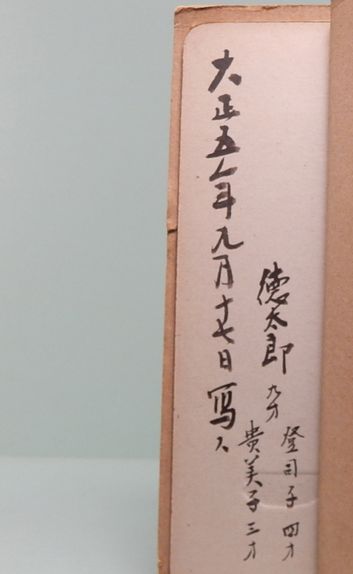 登司子 四才
徳太郎 九才
貴美子 三才
大正五年九月十七日寫ス